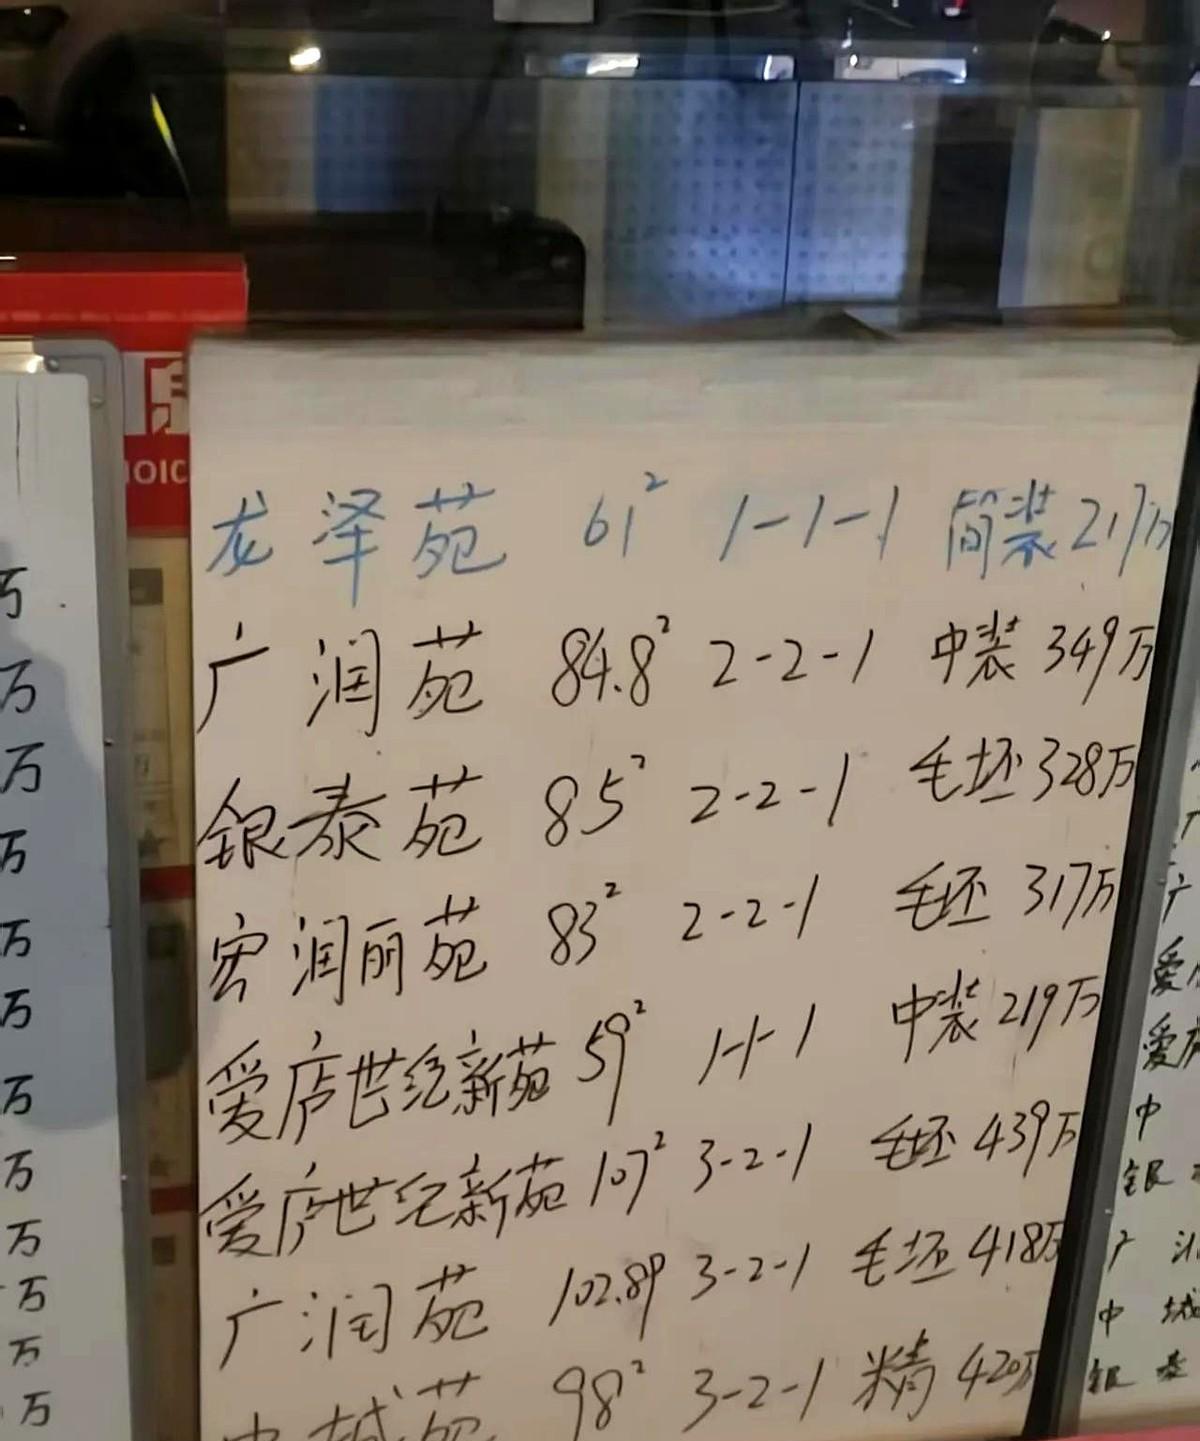 龙泽苑 61² 1-1-1 简装 217万
广润苑 84.8² 2-2-1 中装 349万
银泰苑 85² 2-2-1 毛坯 328万
宏润丽苑 83² 2-2-1 毛坯 317万
爱庐世纪新苑 59² 1-1-1 中装 219万
爱庐世纪新苑 107² 3-2-1 毛坯 439万
广润苑 102.89 3-2-1 毛坯 418万
中城苑 98² 3-2-1 精 420万
万
万
万
万
万
万
万
万
万
万
万
万
OIC
爱
爱庐
中
银
广 润
中 城
银 泰